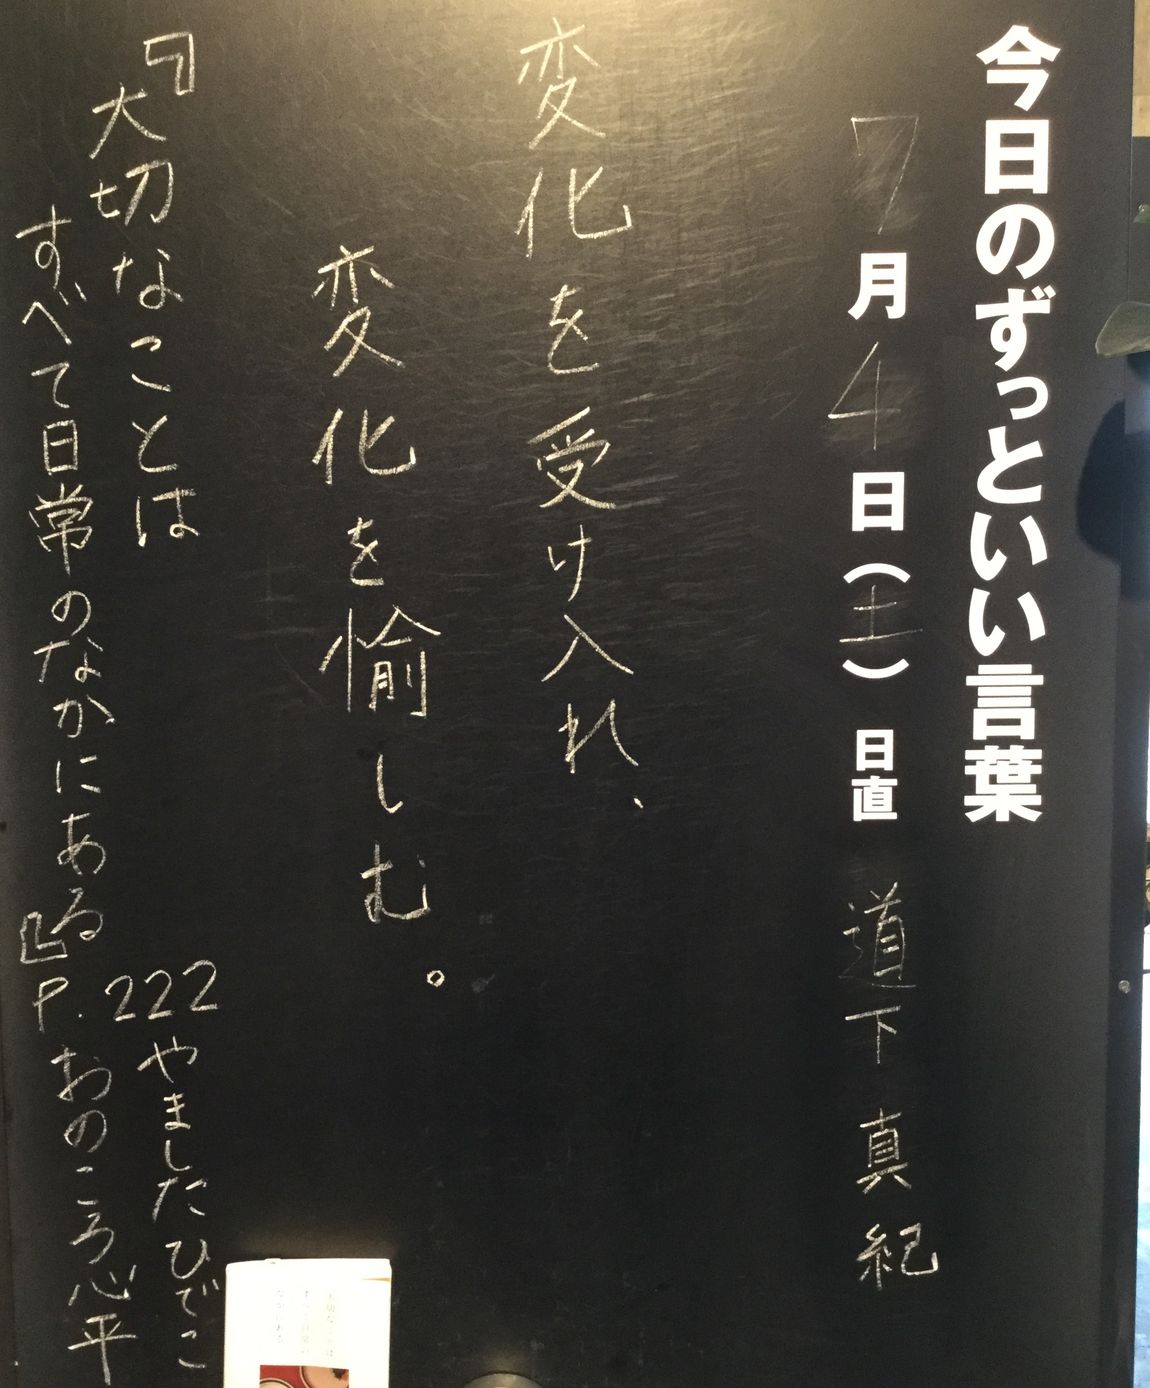 今日のずっといい言葉
7月4日(土) 日直 道下真紀
変化を受け入れ、
変化を愉しむ。
『大切なことは
すべて日常のなかにある』
P.222
やましたひでこ
おのころ心平